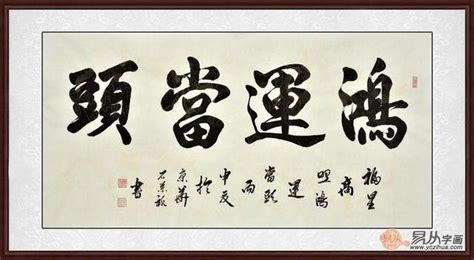 鴻運當頭
福星
高
照鴻
運
當頭
丙
申夏
於
京華
書
易从字画
www.yczihua.com